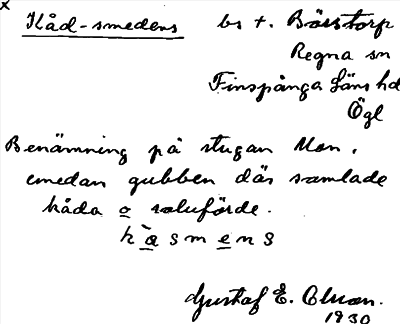 x
Kåd-smedens bs t. Bösstorp
Regna sn
Finspånga läns hd
Ögl
Benämning på stugan Mon,
emedan gubben där samlade
kåda o saluförde.
kàsmens
Gustaf E. Olsson.
1930